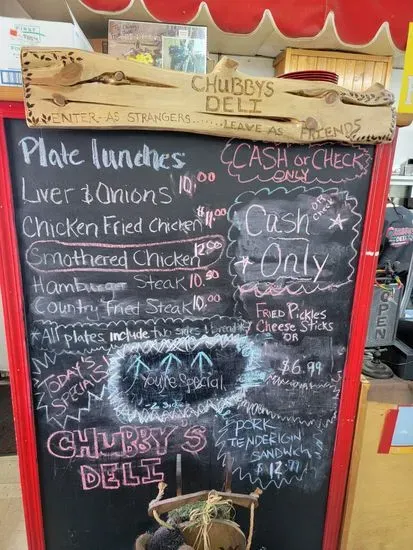 CHUBBYS
DELI
ENTER-AS STRANGERS......LEAVE AS FRIENDS
Plate lunches
Liver & Onions 10.00
Chicken Fried Chicken $11.00
Smothered Chicken 12.00
Hamburger Steak 10.50
Country Fried Steak 10.00
*All plates include two sides & bread*
CASH or CHECK
ONLY
OR
CHECK
Cash
Only
FRIED PICKLES
Cheese Sticks
OR
$6.99
TODAY'S
SPECIALS
You're Special
2 Sides
CHUBBY'S
DELI
PORK
TENDERIGIN
SANDWICH
$12.71
OPEN